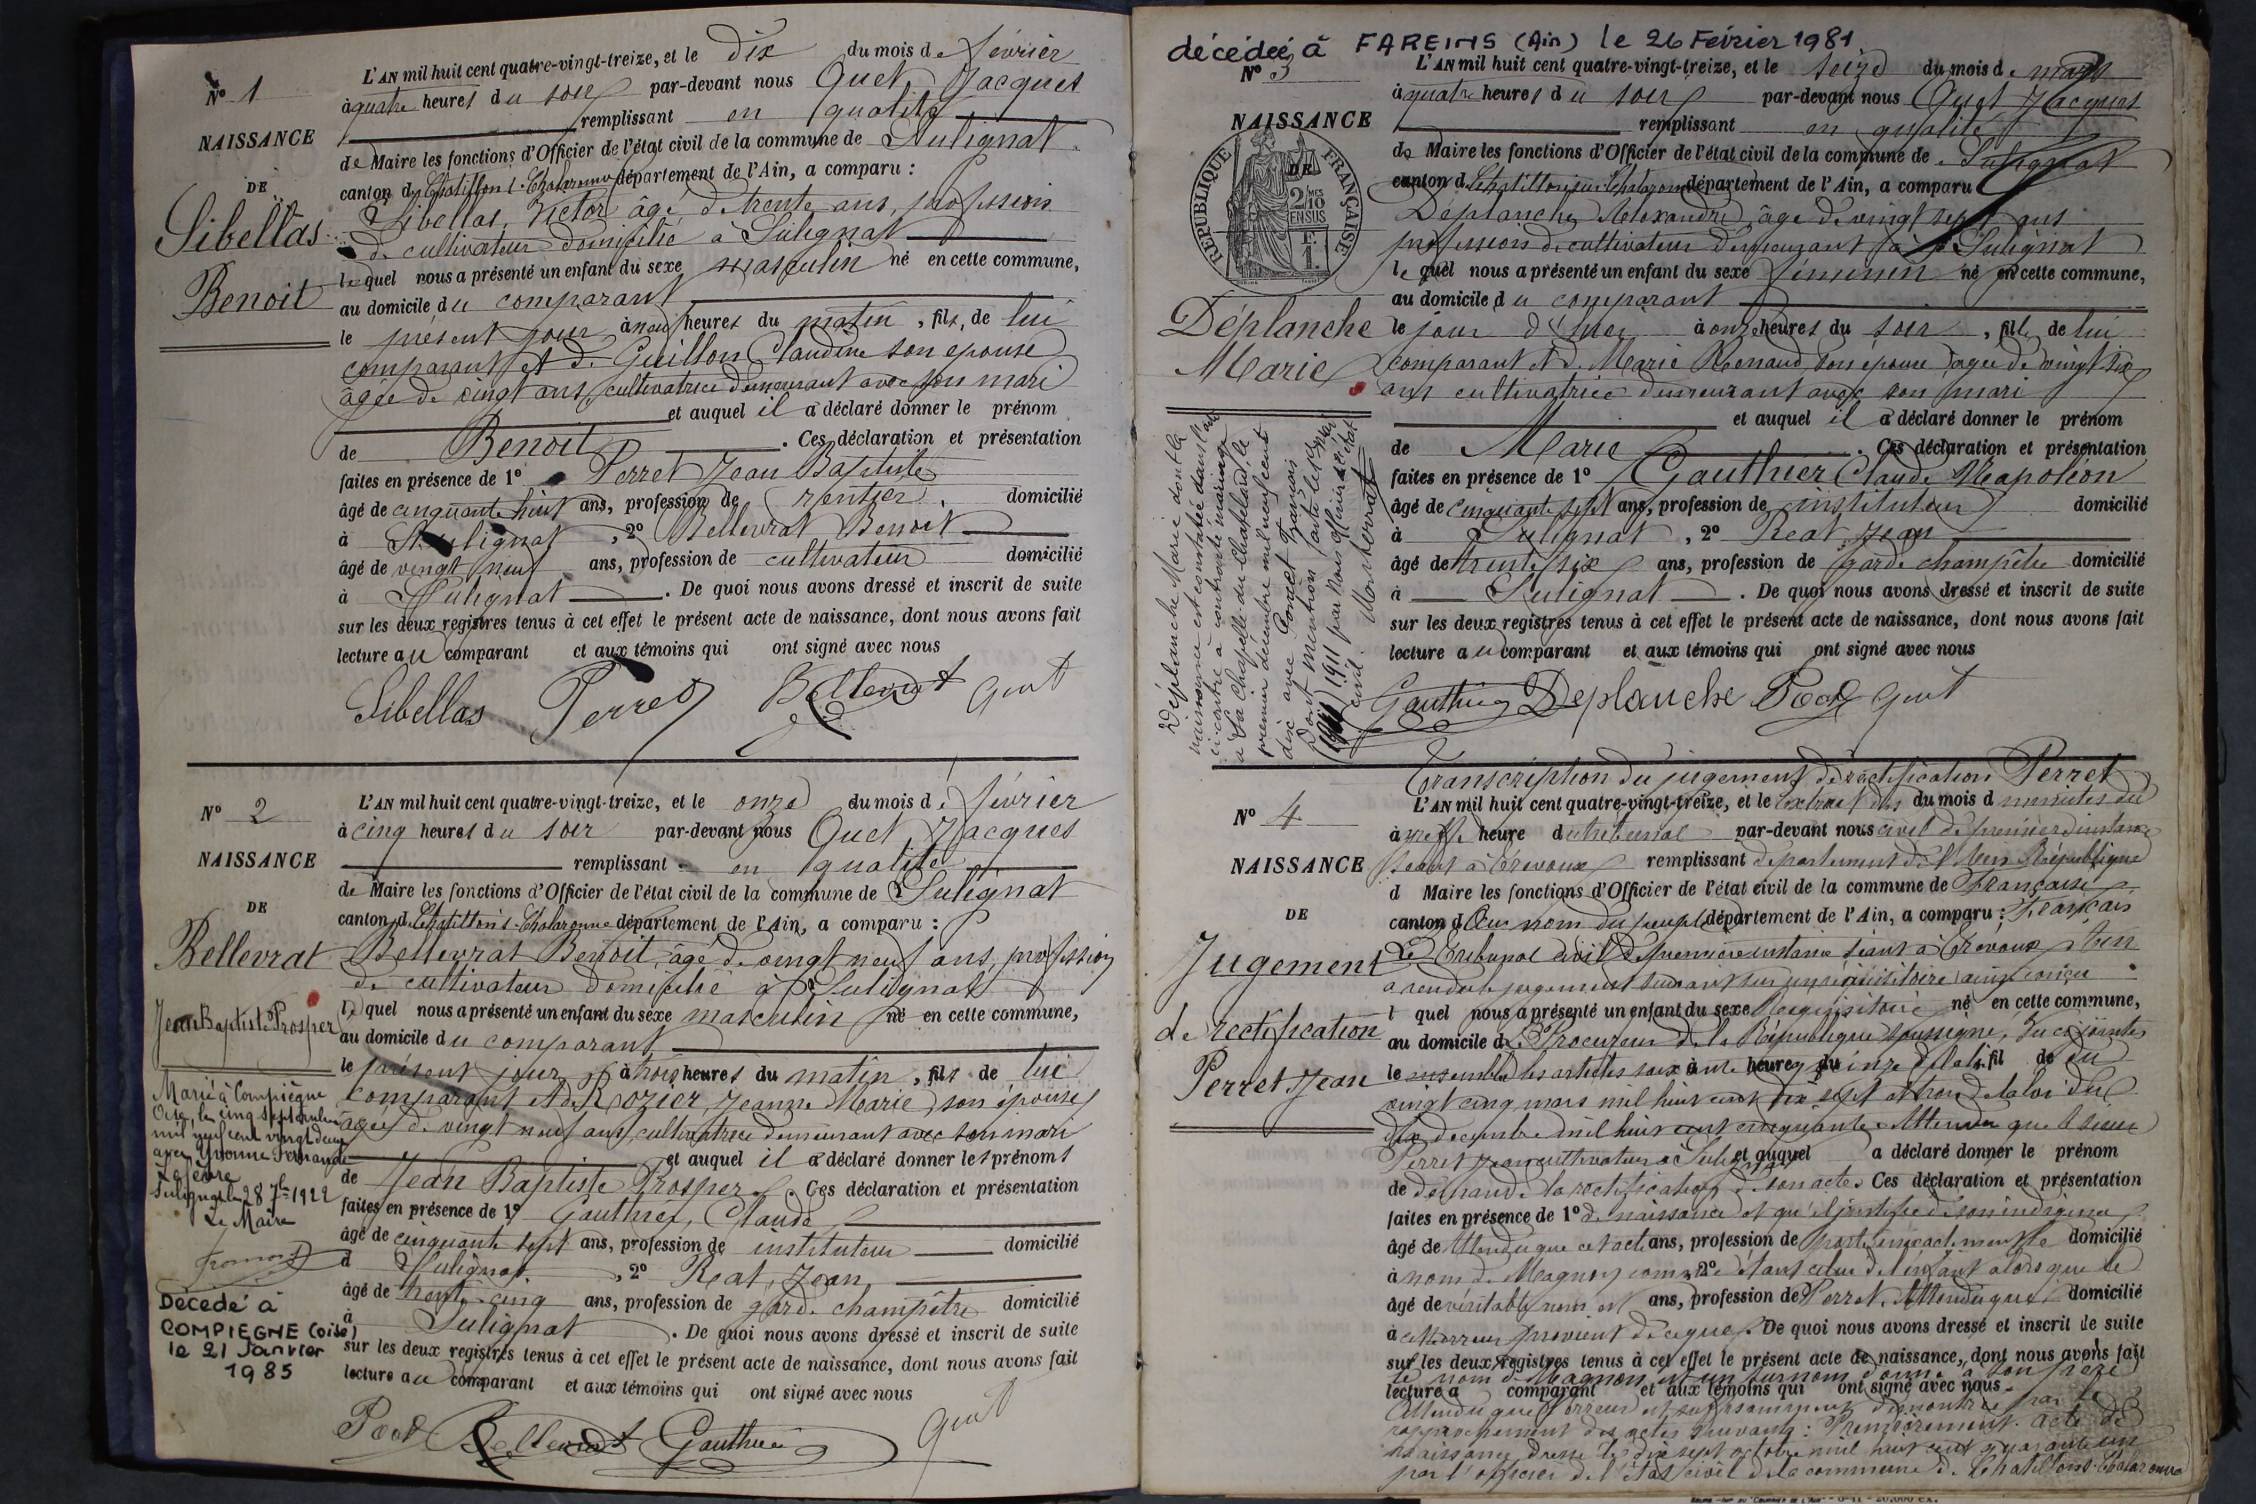 L'AN mil huit cent quatre-vingt-treize, et le dix du mois de février
N° 1
à quatre heures du soir par-devant nous Quet Jacques
remplissant en qualité
NAISSANCE
de Maire les fonctions d'Officier de l'état civil de la commune de Sulignat
DE
canton de Chatillon s. Chalaronne département de l'Ain, a comparu :
Sibellas
Sibellas, Victor âgé de trente ans, profession
de cultivateur domicilié à Sulignat
Benoit
lequel nous a présenté un enfant du sexe masculin né en cette commune,
au domicile du comparant
le présent jour à neuf heures du matin, fils, de lui
comparant et de Guillon Claudine son épouse
âgée de vingt ans, cultivatrice demeurant avec son mari
et auquel il a déclaré donner le prénom
de Benoit. Ces déclaration et présentation
faites en présence de 1° Perret Jean Baptiste
âgé de cinquante huit ans, profession de rentier, domicilié
à Sulignat, 2° Bellevrat Benoit
âgé de vingt neuf ans, profession de cultivateur domicilié
à Sulignat. De quoi nous avons dressé et inscrit de suite
sur les deux registres tenus à cet effet le présent acte de naissance, dont nous avons fait
lecture au comparant et aux témoins qui ont signé avec nous
Sibellas Perret Bellevrat Quet
L'AN mil huit cent quatre-vingt-treize, et le onze du mois de février
N° 2
à cinq heures du soir par-devant nous Quet Jacques
NAISSANCE
remplissant en qualité
de Maire les fonctions d'Officier de l'état civil de la commune de Sulignat
DE
canton de Chatillon s. Chalaronne département de l'Ain, a comparu :
Bellevrat
Bellevrat Benoit, âgé de vingt neuf ans, profession
de cultivateur domicilié à Sulignat
Jean Baptiste Prosper
lequel nous a présenté un enfant du sexe masculin né en cette commune,
au domicile du comparant
le présent jour à trois heures du matin, fils de lui
comparant et de Rozier, Jeanne Marie, son épouse
âgée de vingt neuf ans, cultivatrice demeurant avec son mari
et auquel il a déclaré donner les prénoms
de Jean Baptiste Prosper. Ces déclaration et présentation
faites en présence de 1° Gauthier, Claude
âgé de cinquante sept ans, profession de instituteur domicilié
à Sulignat, 2° Reat, Jean
âgé de trente cinq ans, profession de garde champêtre domicilié
à Sulignat. De quoi nous avons dressé et inscrit de suite
sur les deux registres tenus à cet effet le présent acte de naissance, dont nous avons fait
lecture au comparant et aux témoins qui ont signé avec nous
Bellevrat Gauthier Quet
Marié à Compiègne
Oise, le cinq septembre
mil neuf cent vingt deux
avec Yvonne Fernande
Lefèvre
Sulignat le 28 7bre 1922
Le Maire
Décédé à
COMPIEGNE (oise)
le 21 Janvier
1985
décédée à FAREINS (Ain) le 26 Février 1981
N° 3
L'AN mil huit cent quatre-vingt-treize, et le seize du mois de mars
à quatre heures du soir par-devant nous Quet Jacques
NAISSANCE
remplissant en qualité
de Maire les fonctions d'Officier de l'état civil de la commune de Sulignat
DE
REPUBLIQUE FRANÇAISE
2/10mes
EN SUS
1 F.
canton de Chatillon sur Chalaronne département de l'Ain, a comparu
Déplanche Alexandre, âgé de vingt sept ans
profession de cultivateur demeurant à Sulignat
lequel nous a présenté un enfant du sexe féminin né en cette commune,
au domicile du comparant
Déplanche
Marie
le jour d'hier à onze heures du soir, fille de lui
comparant et de Marie Renaud son épouse âgée de vingt six
ans cultivatrice demeurant avec son mari
et auquel il a déclaré donner le prénom
de Marie. Ces déclaration et présentation
faites en présence de 1° Gauthier Claude Napoléon
âgé de cinquante sept ans, profession de instituteur domicilié
à Sulignat, 2° Reat, Jean
âgé de trente six ans, profession de garde champêtre domicilié
à Sulignat. De quoi nous avons dressé et inscrit de suite
sur les deux registres tenus à cet effet le présent acte de naissance, dont nous avons fait
lecture au comparant et aux témoins qui ont signé avec nous
Gauthier Deplanche Quet
Déplanche Marie dont la
naissance est constatée dans l'acte
ci-contre a contracté mariage
à La Chapelle du Chatelard, le
premier décembre mil neuf cent
dix avec Poncet François
Dont mention faite le
1911 par nous officier de l'état
civil. Monterrat
Transcription du jugement de rectification Perret
N° 4
L'AN mil huit cent quatre-vingt-treize, et le extrait des du mois d minutes du
à greffe heure du tribunal par-devant nous civil de première instance
NAISSANCE
séant à Trévoux remplissant département de l'Ain République
d Maire les fonctions d'Officier de l'état civil de la commune de Française
DE
canton d Au nom du peuple département de l'Ain, a comparu : Français
Jugement
de rectification
Perret Jean
Le Tribunal civil de première instance séant à Trévoux
a rendu le jugement suivant sur un réquisitoire ainsi conçu
l quel nous a présenté un enfant du sexe Réquisitoire né en cette commune,
au domicile d Le Procureur de la République soussigné, Vu
le ensemble les articles à heures du fil de du
vingt cinq mars mil huit cent dix sept et trois de la loi du
dix décembre mil huit cent cinquante Attendu que le sieur
Perret Jean cultivateur à Sulignat et auquel a déclaré donner le prénom
de demande la rectification de son acte. Ces déclaration et présentation
faites en présence de 1° de naissance et qu'il justifie de son indigence
âgé de Attendu que cet acte ans, profession de porte inexactement le domicilié
à nom de Magnon comme 2° étant celui de l'enfant alors que le
âgé de véritable nom est ans, profession de Perret. Attendu que domicilié
à cette erreur provient de ce que. De quoi nous avons dressé et inscrit de suite
sur les deux registres tenus à cet effet le présent acte de naissance, dont nous avons fait
le nom de Magnon est un surnom donné à son père
lecture a comparant et aux témoins qui ont signé avec nous
Attendu que l'erreur est suffisamment démontrée par le
rapprochement des actes suivants : Premièrement. acte de
naissance dressé le dix sept octobre mil huit cent quarante un
par l'officier de l'état civil de la commune de Chatillon s. Chalaronne